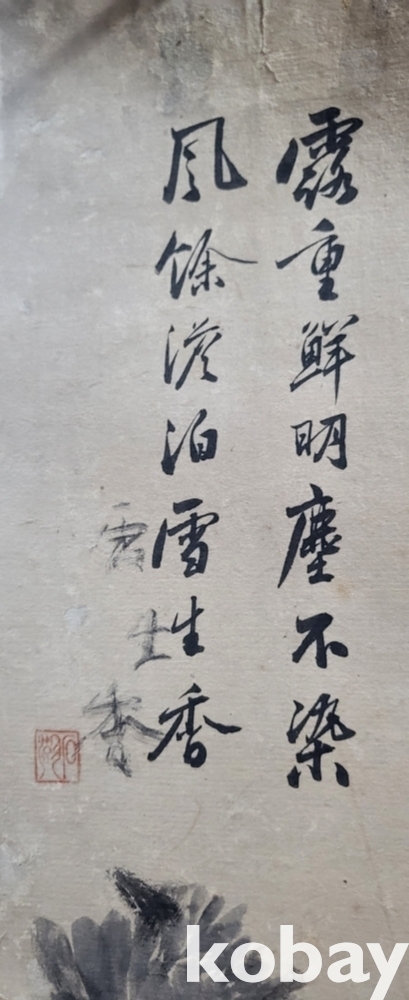 露重鮮明塵不染
風餘淡泊雪生香
kobay